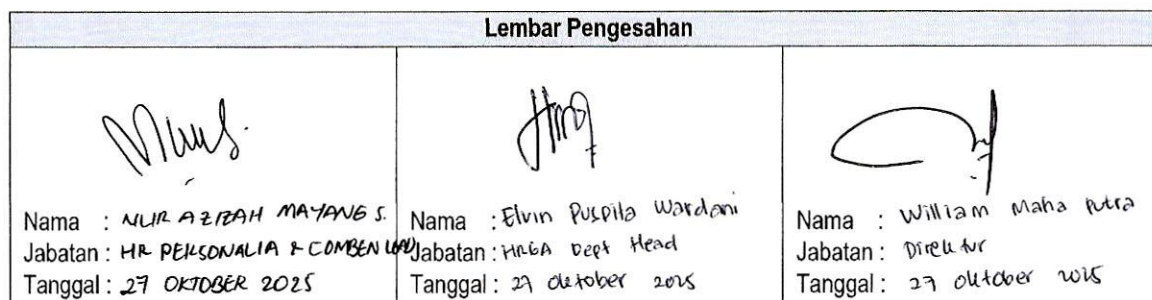 Lembar Pengesahan
Nama : NUR AZIZAH MAYANG S.
Jabatan : HR PERSONALIA & COMBEN LEAD
Tanggal : 27 OKTOBER 2025
Nama : Elvin Puspita Wardani
Jabatan : HRGA Dept Head
Tanggal : 27 Oktober 2025
Nama : William Maha Putra
Jabatan : Direktur
Tanggal : 27 Oktober 2025